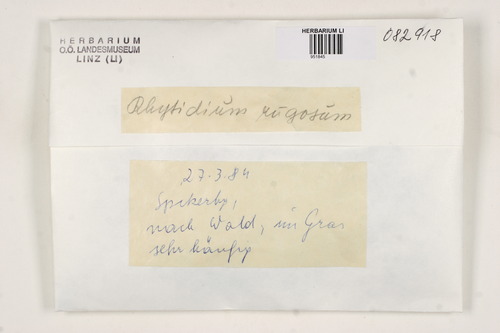 HERBARIUM
O.Ö. LANDESMUSEUM
LINZ (LI)
HERBARIUM LI
082918
Rhytidium rugosum
27.3.84
nach Wald, im Gras
sehr häufig